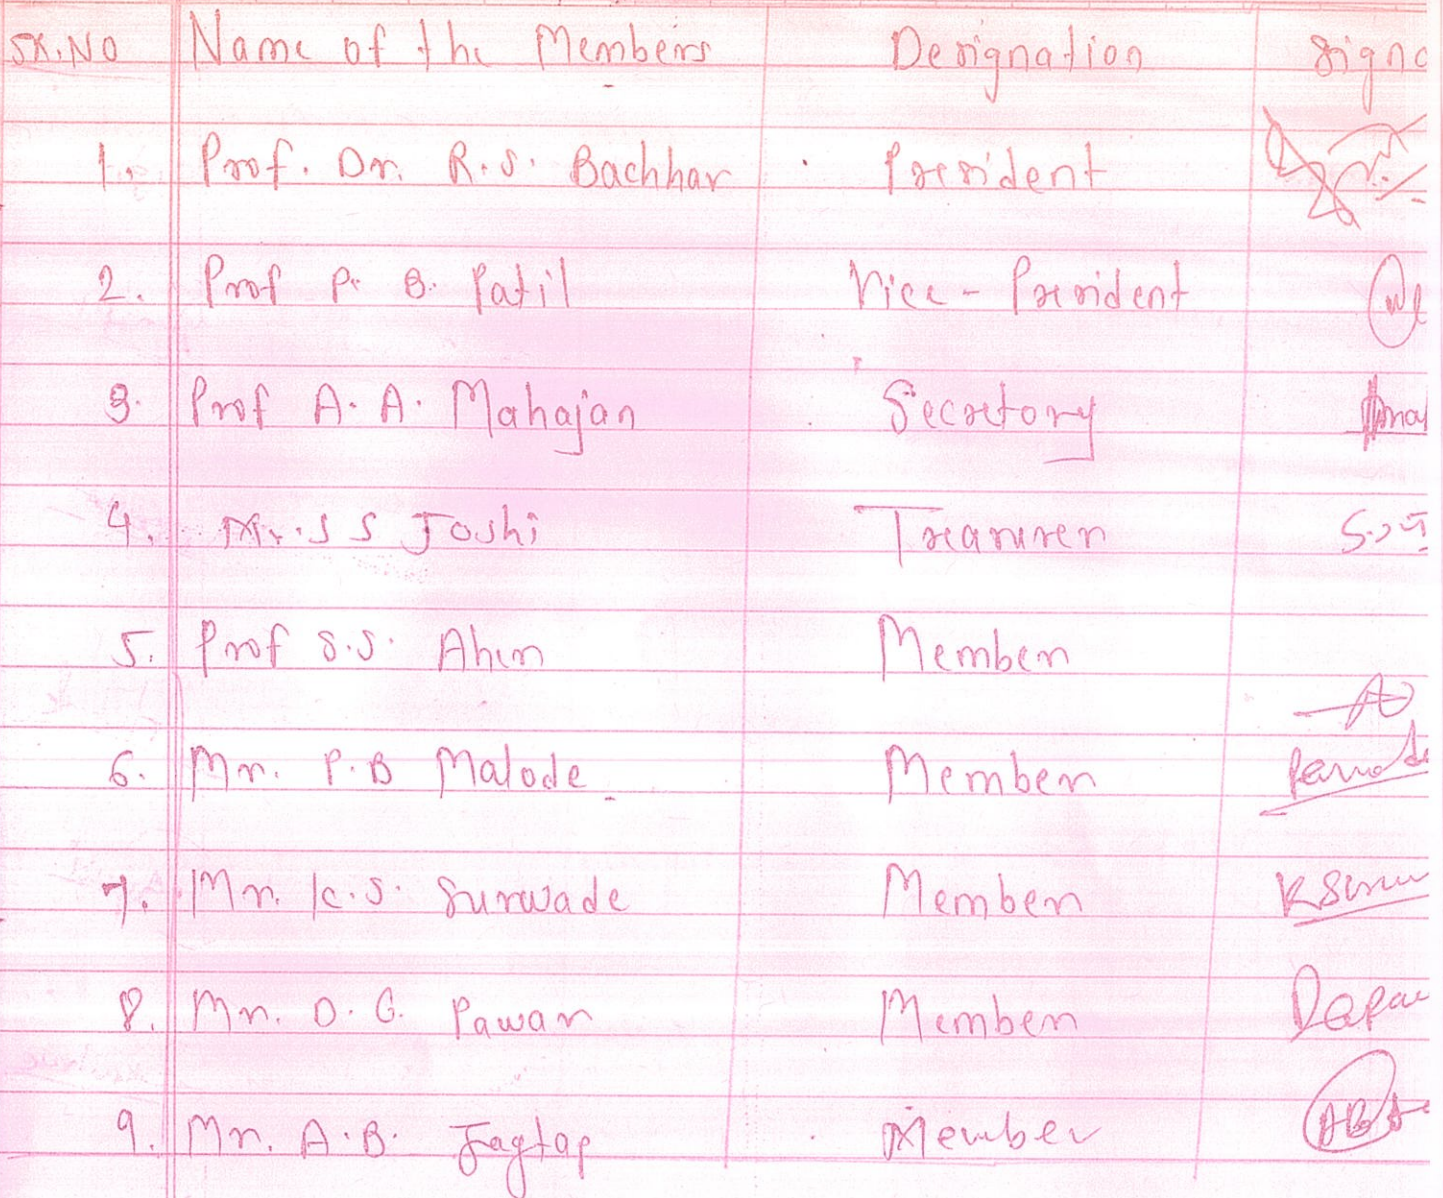 SR.NO Name of the Members Designation Signa
1. Prof. Dr. R.S. Bachhav President
2. Prof P. B. Patil Vice-President
3. Prof A. A. Mahajan Secretory
4. Mr. S S Joshi Treasurer S.S.J
5. Prof S.S. Ahir Member
6. Mr. P.B Malode Member
7. Mr. K.S. Surwade Member
8. Mr. D. G. Pawar Member
9. Mr. A.B. Jagtap Member